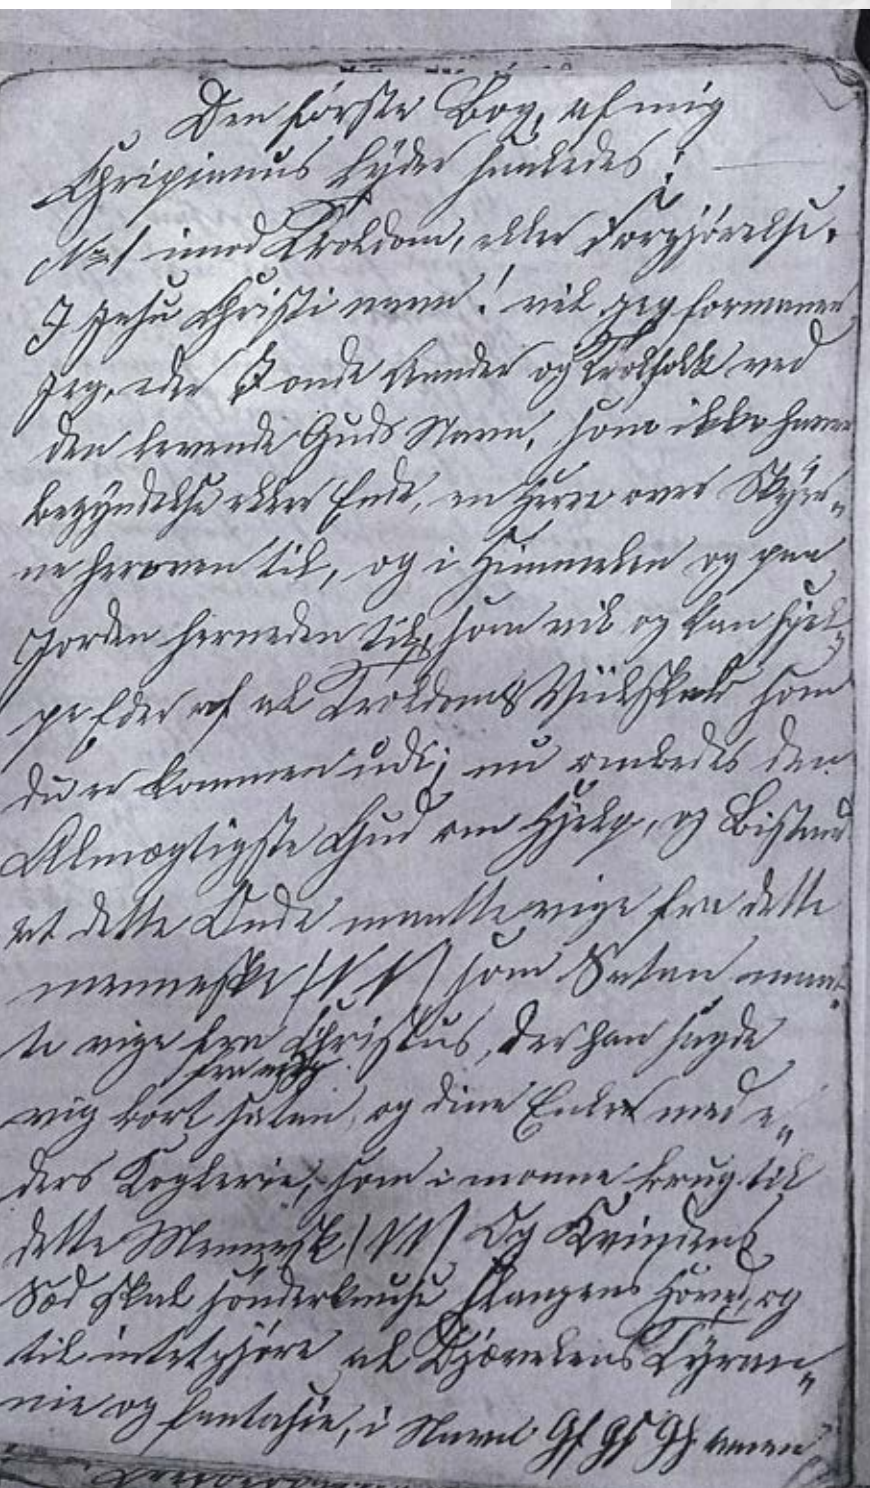 Den første Bog, af mig
Chripianus lyder saaledes:
No 1 imod Troldom, eller Forgjørelse.
I Jesu Christi navn! vil jeg formane
Jeg, eder I onde Aander og Trolfolk ved
den levende Guds Navn, som ikke haver
begyndelse eller Ende, en Herre over Skyer„
ne heroven til, og i Himmelen og paa
Jorden herneden til, som vil og kan hjel„
pe Eder af al Troldoms Spilskab som
du er kommen udi; nu anbedes den
Almægtigste Gud om Hjelp, og Bistand
at dette Onde maatte vige fra dette
menneske / N N / som Satan maat„
te vige fra Christus, der han sagde
fra mig
vig bort satan, og dine Engler med e„
ders Koglerie, som i monne brug til
dette Mennisk / N N / Og Kvindens
Sæd skal sønderknuse slangens Hoved, og
til intetgjøre al Djævelens Tyran„
nie og fantasie, i Navn Gf GS GH amen